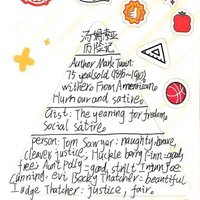 汤姆索亚
历险记
Author Mark Twain:
75 years old (1835~1910)
withers From American.
Humour and satire.
Gist: The yearning for freedom.
Social satire.
person: Tom Sawyer: naughty, brave,
clever, justice, Huckle berry Finn
free; Aunt Polly: good, strict; Injun Joe:
cunning, evil Becky Thatcher: beautiful
Judge Thatcher: justice, fair.